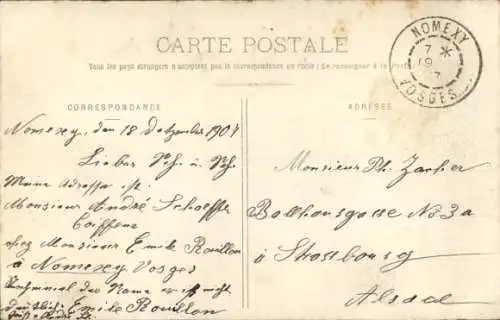 CARTE POSTALE
Tous les pays étrangers n'acceptent pas la correspondance au recto (Se renseigner à la Poste)
CORRESPONDANCE
ADRESSE
NOMEXY
7 *
19
7
VOSGES
Nomexy, den 18 Dezember 1907
Lieber
Meine Adresse ist.
Monsieur André Schaeffer
Coiffeur
chez Monsieur Emile Rouillon
à Nomexy Vosges
der Name nicht
deutlich Emile Rouillon
Monsieur Ph. Zacher
Ballhausgasse No 3a
à Strassbourg
Alsace